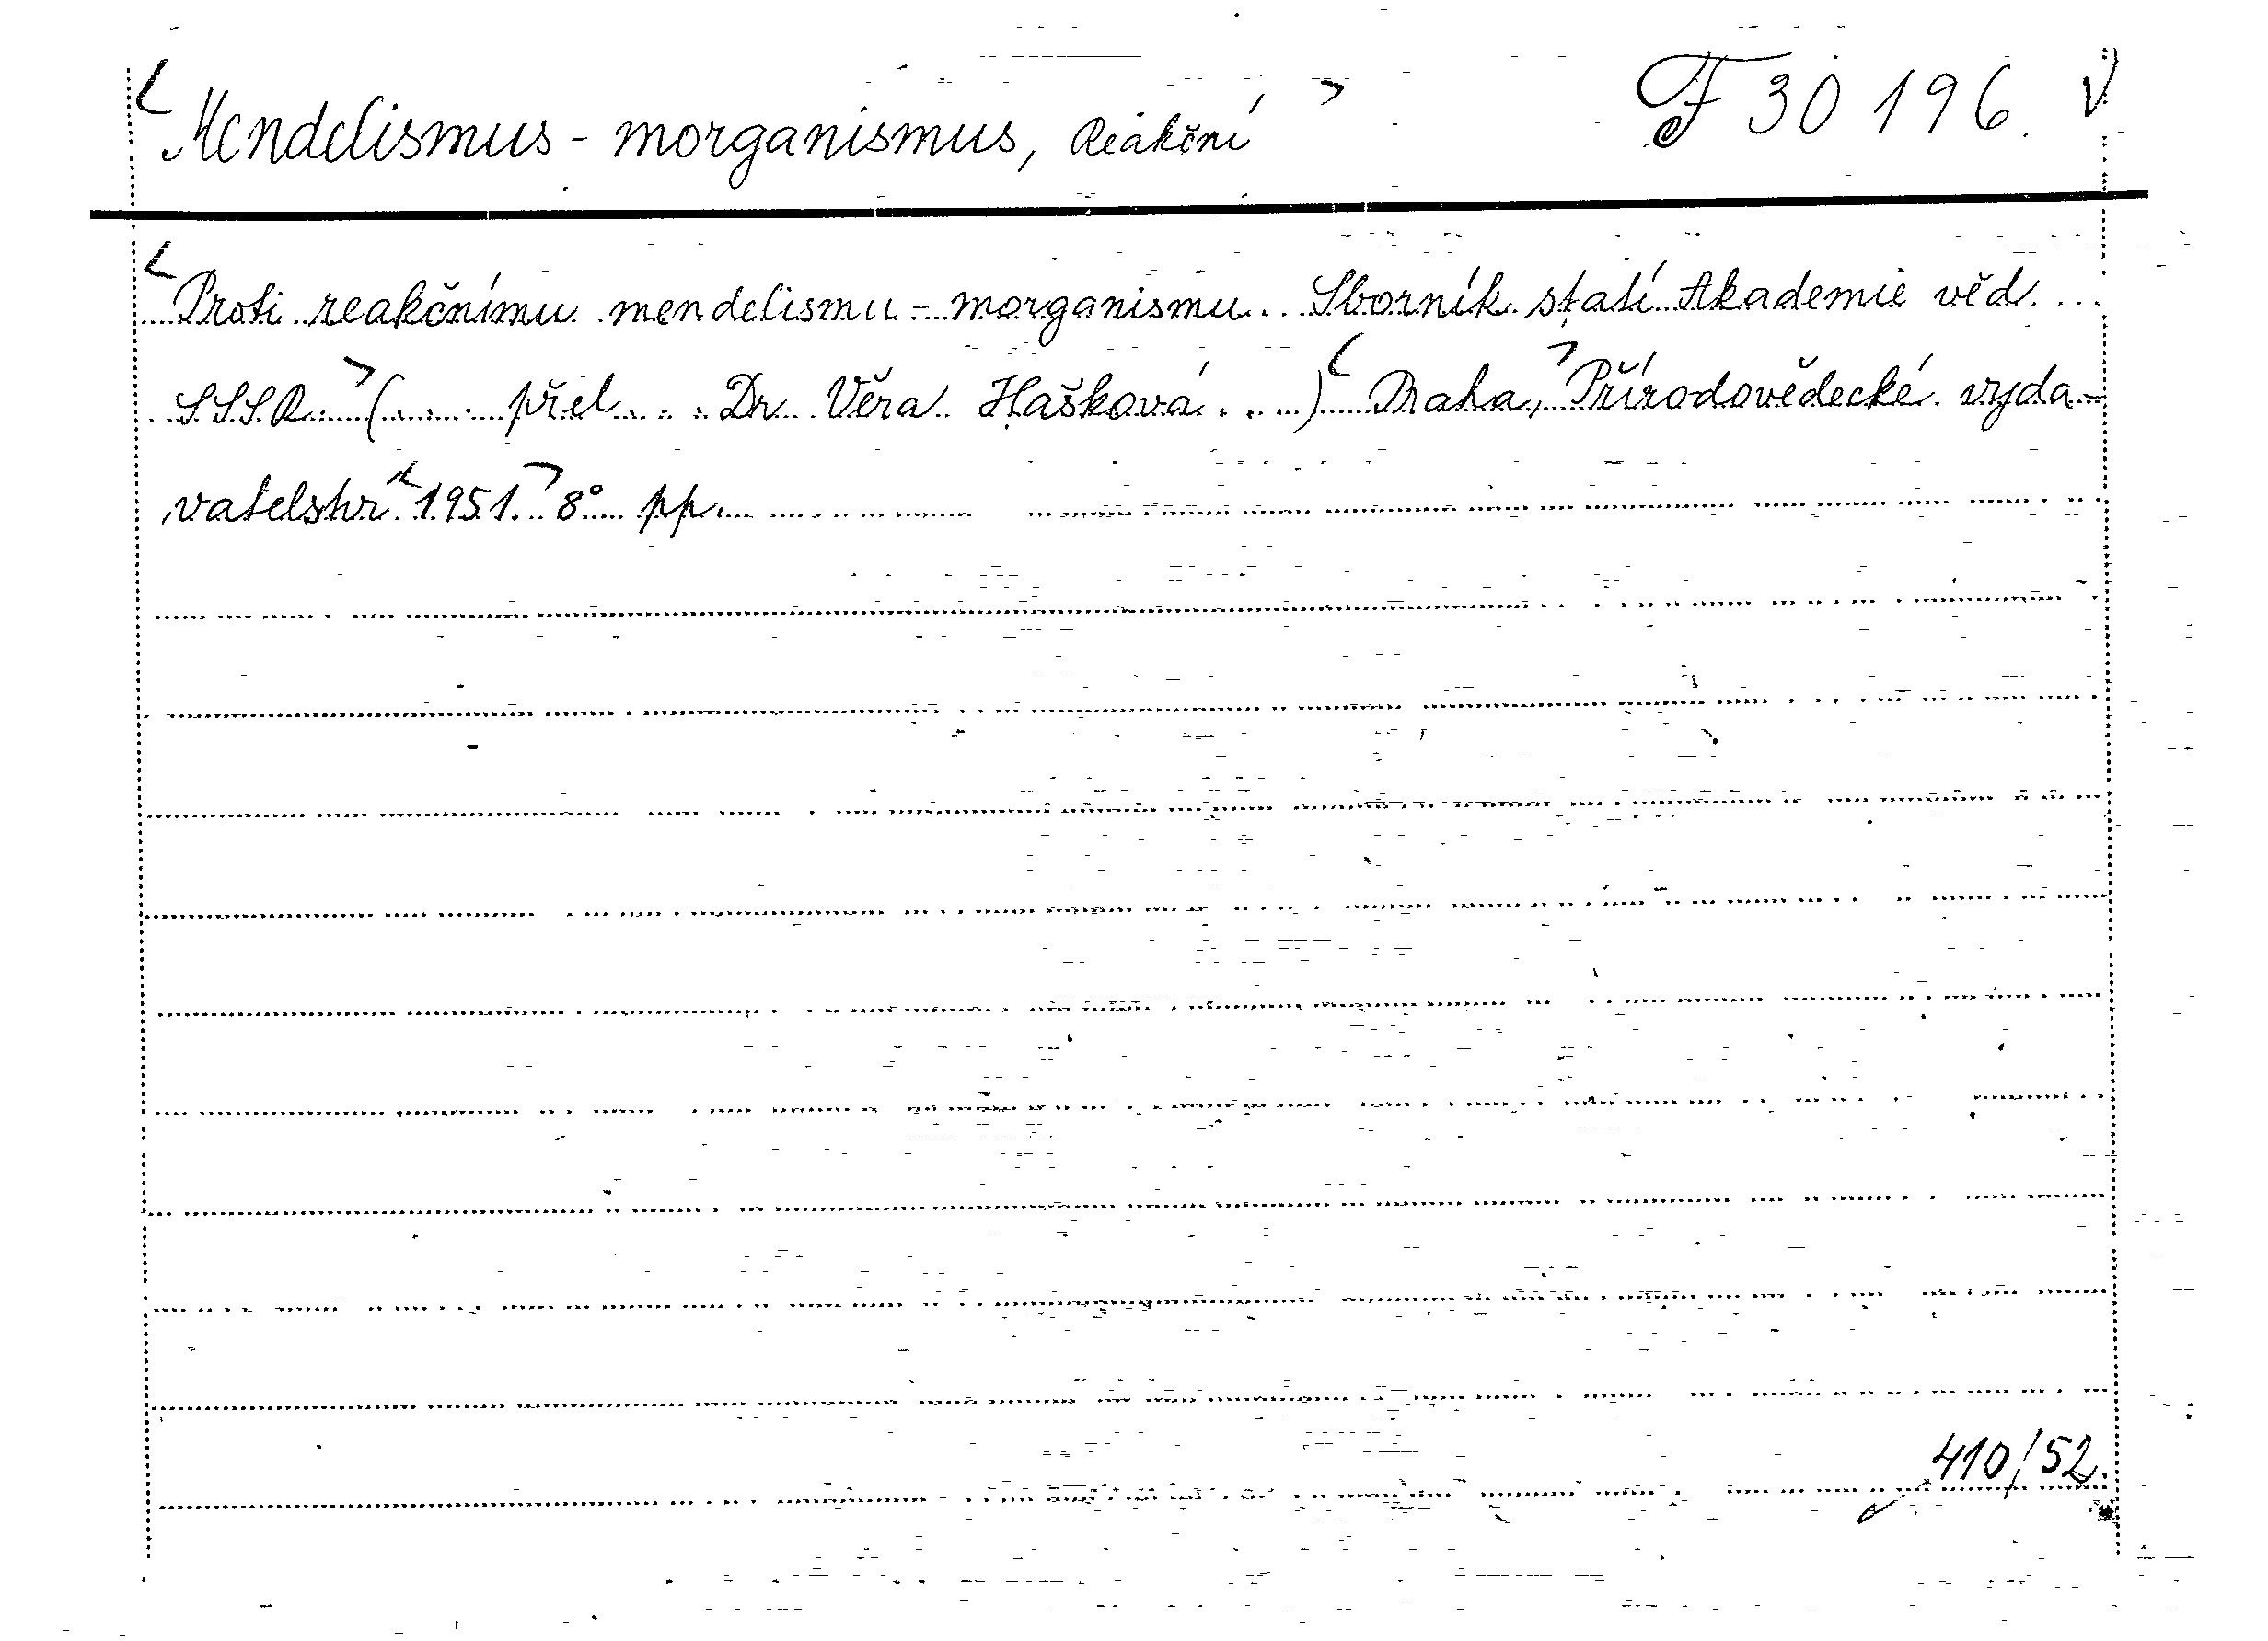 Mendelismus - morganismus, Reakční F 30 196.
Proti reakčnímu mendelismu - morganismu. Sborník statí Akademie věd ...
SSSR (... přel. ... Dr Věra Hašková ...) Praha, Přírodovědecké vyda-
vatelstv. 1951. 8° pp.
410/52.